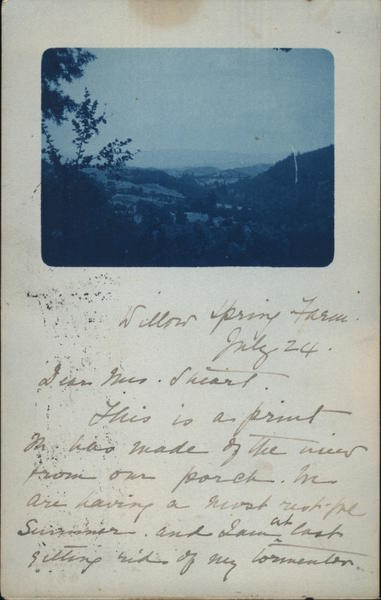 Willow Spring Farm.
July 24.
Dear Mrs. Stuart.
This is a print
M has made of the view
from our porch. We
are having a most restful
Summer. and I am at last
getting rid of my tormentor